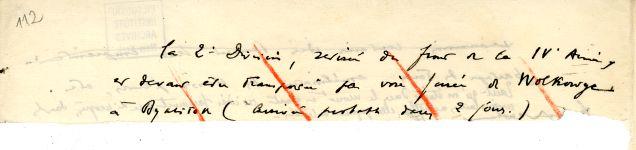 112
La 2e Division, retirée du front de la IVe Armée,
et devant être transportée par voie ferrée de Wolkowysk
à Byalistok ( Arrivée probable dans 2 jours. )